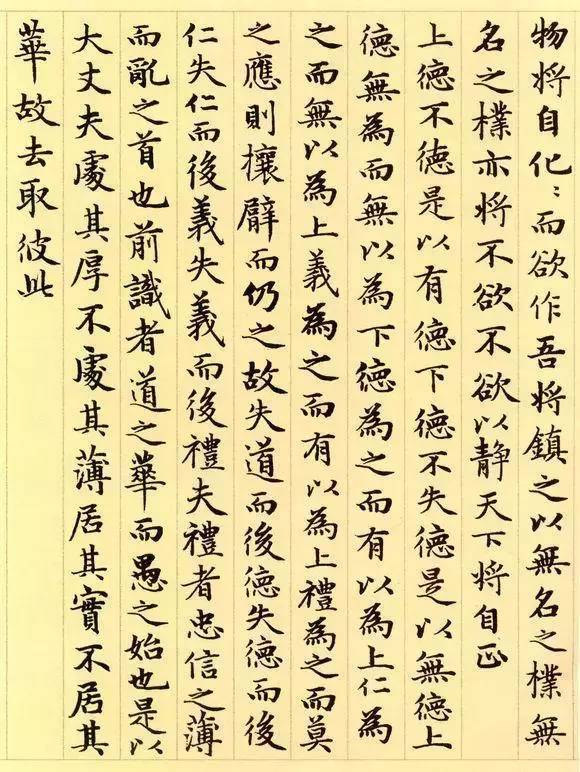 物将自化〻而欲作吾将鎮之以無名之樸無
名之樸亦将不欲不欲以静天下将自正
上德不德是以有德下德不失德是以無德上
德無為而無以為下德為之而有以為上仁為
之而無以為上義為之而有以為上禮為之而莫
之應則攘臂而仍之故失道而後德失德而後
仁失仁而後義失義而後禮夫禮者忠信之薄
而亂之首也前識者道之華而愚之始也是以
大丈夫處其厚不處其薄居其實不居其
華故去取彼此